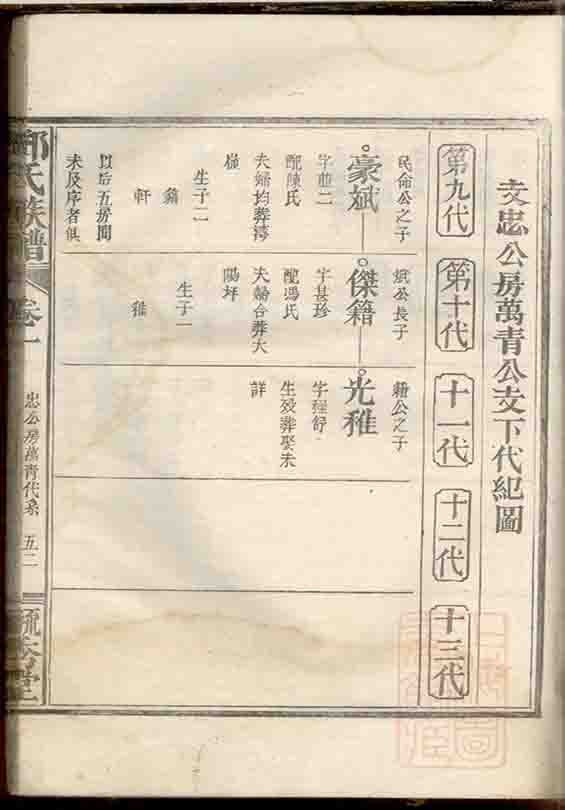 文忠公房萬青公支下代紀圖
第九代
第十代
十一代
十二代
十三代
民命公之子
豪斌
字並二
配陳氏
夫婦均葬灣
嶺
生子二
籍
軒
以后五房間
未及序者俱
斌公長子
傑籍
字甚珍
配馮氏
夫婦合葬大
陽坪
生子一
稚
籍公之子
光稚
生歿葬娶未
詳
氏族譜
卷一
忠公房萬青代系
五二